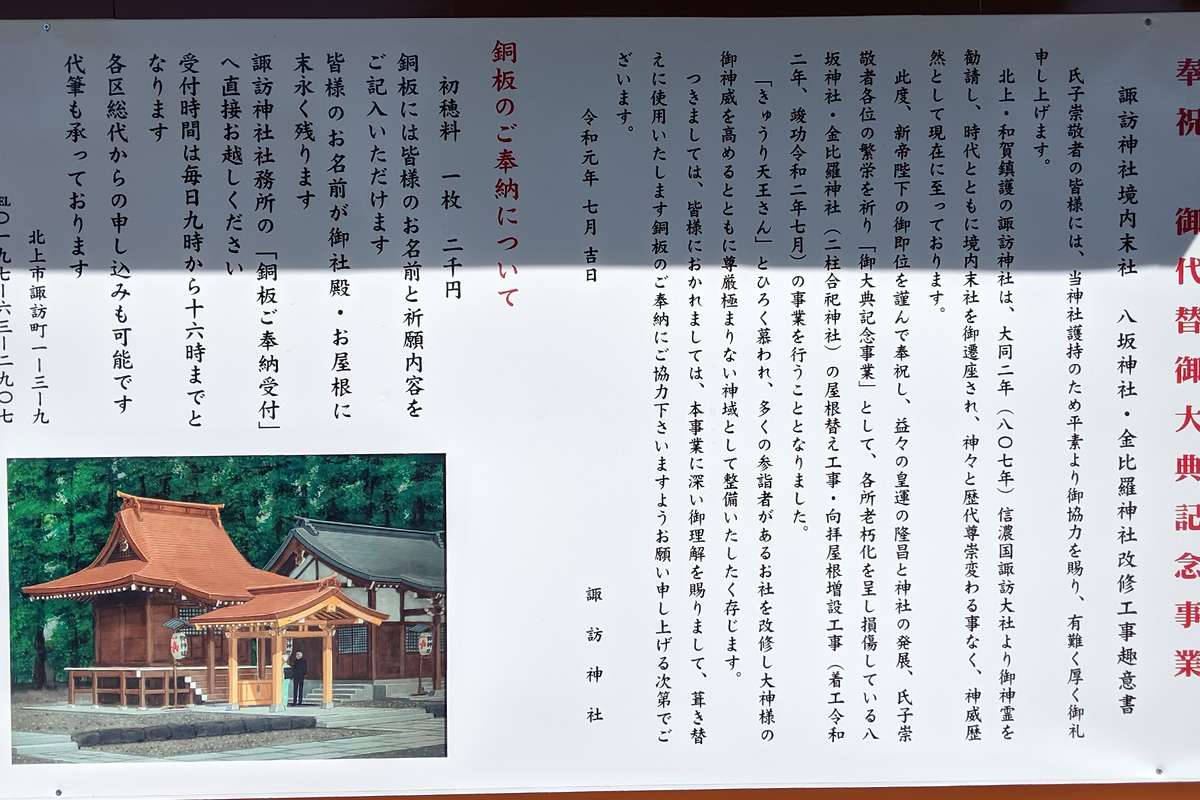 奉祝 御代替御大典記念事業
諏訪神社境内末社 八坂神社・金比羅神社改修工事趣意書
氏子崇敬者の皆様には、当神社護持のため平素より御協力を賜り、有難く厚く御礼
申し上げます。
北上・和賀鎮護の諏訪神社は、大同二年（八〇七年）信濃国諏訪大社より御神霊を
勧請し、時代とともに境内末社を御遷座され、神々と歴代尊崇変わる事なく、神威歴
然として現在に至っております。
此度、新帝陛下の御即位を謹んで奉祝し、益々の皇運の隆昌と神社の発展、氏子崇
敬者各位の繁栄を祈り「御大典記念事業」として、各所老朽化を呈し損傷している八
坂神社・金比羅神社（二柱合祀神社）の屋根替え工事・向拝屋根増設工事（着工令和
二年、竣功令和二年七月）の事業を行うこととなりました。
「きゅうり天王さん」とひろく慕われ、多くの参詣者があるお社を改修し大神様の
御神威を高めるとともに尊厳極まりない神域として整備いたしたく存じます。
つきましては、皆様におかれましては、本事業に深い御理解を賜りまして、葺き替
えに使用いたします銅板のご奉納にご協力下さいますようお願い申し上げる次第でご
ざいます。
令和元年 七月 吉日
諏訪神社
銅板のご奉納について
初穂料 一枚 二千円
銅板には皆様のお名前と祈願内容を
ご記入いただけます
皆様のお名前が御社殿・お屋根に
末永く残ります
諏訪神社社務所の「銅板ご奉納受付」
へ直接お越しください
受付時間は毎日九時から十六時までと
なります
各区総代からの申し込みも可能です
代筆も承っております
北上市諏訪町一ー三ー九
℡〇一九七ー六三ー二九〇七